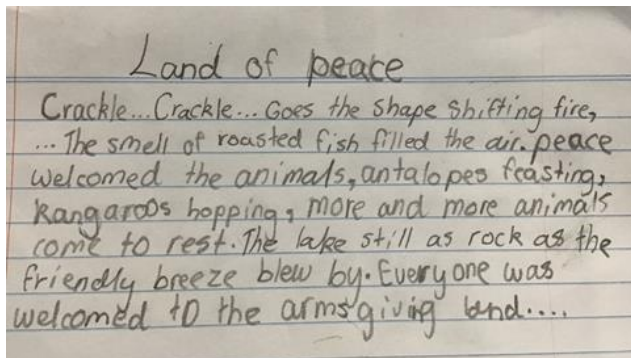 Land of peace
Crackle... Crackle... Goes the shape shifting fire,
... The smell of roasted fish filled the air. peace
welcomed the animals, antalopes feasting,
kangaroos hopping, more and more animals
come to rest. The lake still as rock as the
friendly breeze blew by. Everyone was
welcomed to the arms giving land....